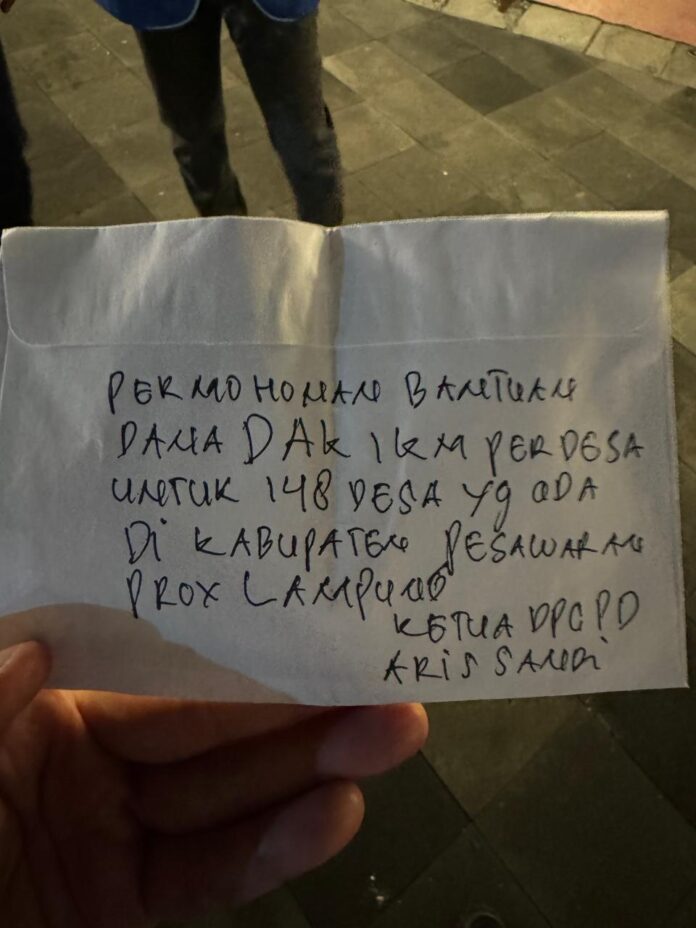 PERMOHONAN BANTUAN
DANA DAK 1 KM PERDESA
UNTUK 148 DESA Yg ADA
Di KABUPATEN PESAWARAN
PROX LAMPUNG
KETUA DPC PD
ARIS SANDi